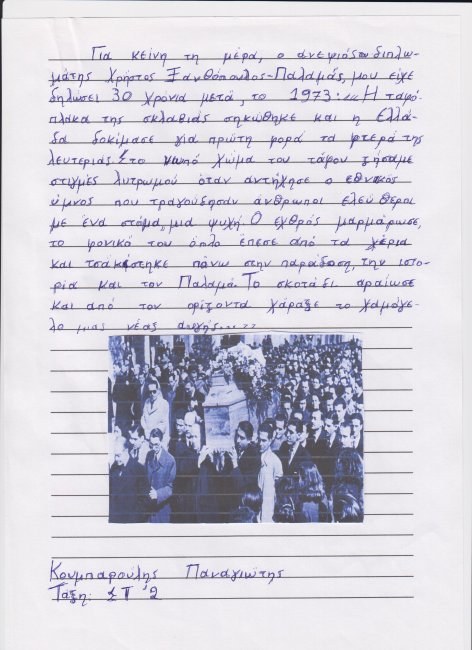 Για κείνη τη μέρα, ο ανεψιός του διπλω-
μάτης Χρήστος Ξανθόπουλος-Παλαμάς, μου είχε
δηλώσει 30 χρόνια μετά, το 1973: ,,,Η ταφό-
πλακα της σκλαβιάς σηκώθηκε και η Ελλά-
δα δοκίμασε για πρώτη φορά τα φτερά της
λευτεριάς. Στο νωπό χώμα του τάφου ζήσαμε
στιγμές λυτρωμού όταν αντήχησε ο εθνικός
ύμνος που τραγούδησαν άνθρωποι ελεύθεροι
με ένα στόμα, μια ψυχή. Ο εχθρός μαρμάρωσε,
το φονικό του όπλο έπεσε από τα χέρια
και τσακίστηκε πάνω στην παράδοση, την ιστο-
ρία και τον Παλαμά. Το σκοτάδι αραίωσε
και από τον ορίζοντα χάραξε το χαμόγε-
λο μιας νέας αυγής....,,
Κουμπαρούλης Παναγιώτης
Τάξη: ΣΤ΄2